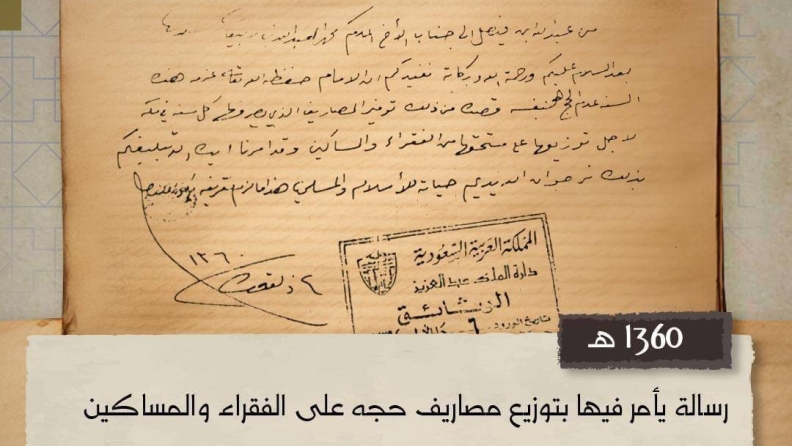 من عبد الله ابن فيصل الى جناب الأخ المكرم
بعد السلام عليكم ورحمة الله وبركاته نفيدكم ان الامام حفظه الله تعالى عزمه هذه
السنه عدم الحج بنفسه قصده من ذلك توفير المصاريف الذي يصرفها كل سنه في مكة
لاجل توزيعها على مستحقها من الفقراء والمساكين وقد امرنا تبليغكم
بذلك نرجو ان الله يديم حياته للأسلام والمسلمين هذا مالزم تعريفه
١٣٦٠
المملكة العربية السعودية
دارة الملك عبد العزيز
الوثائق
تاريخ الورود
1360 هـ
رسالة يأمر فيها بتوزيع مصاريف حجه على الفقراء والمساكين